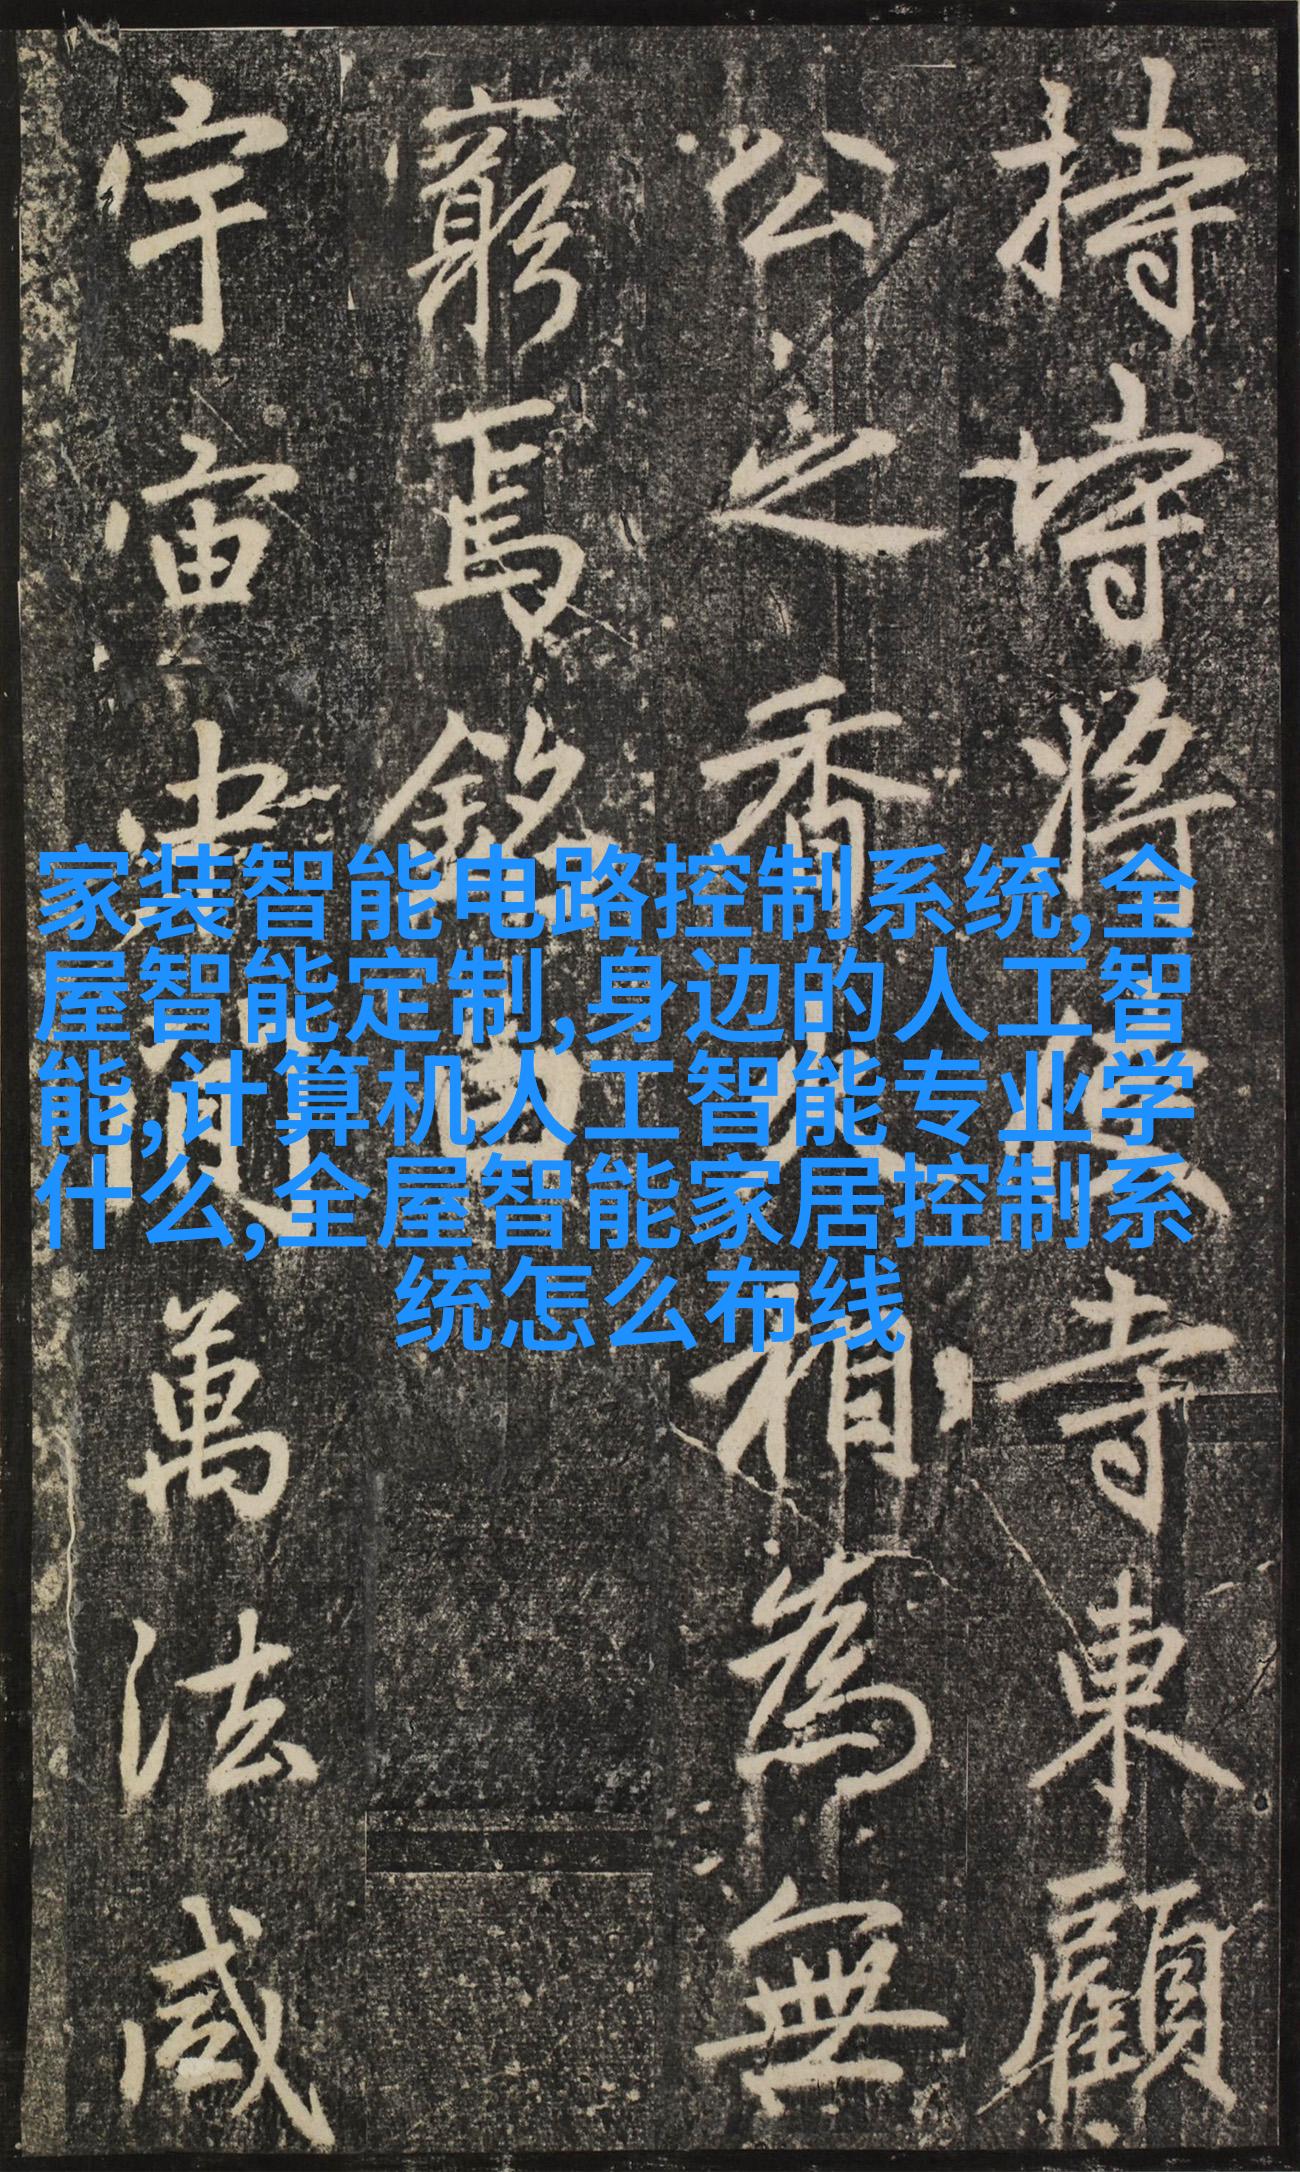 持埒將墜寺東顧
公之香火相為無
窮焉銘曰
宇宙中間萬法咸
家装智能电路控制系统,全
屋智能定制,身边的人工智
能,计算机人工智能专业学
什么,全屋智能家居控制系
统怎么布线